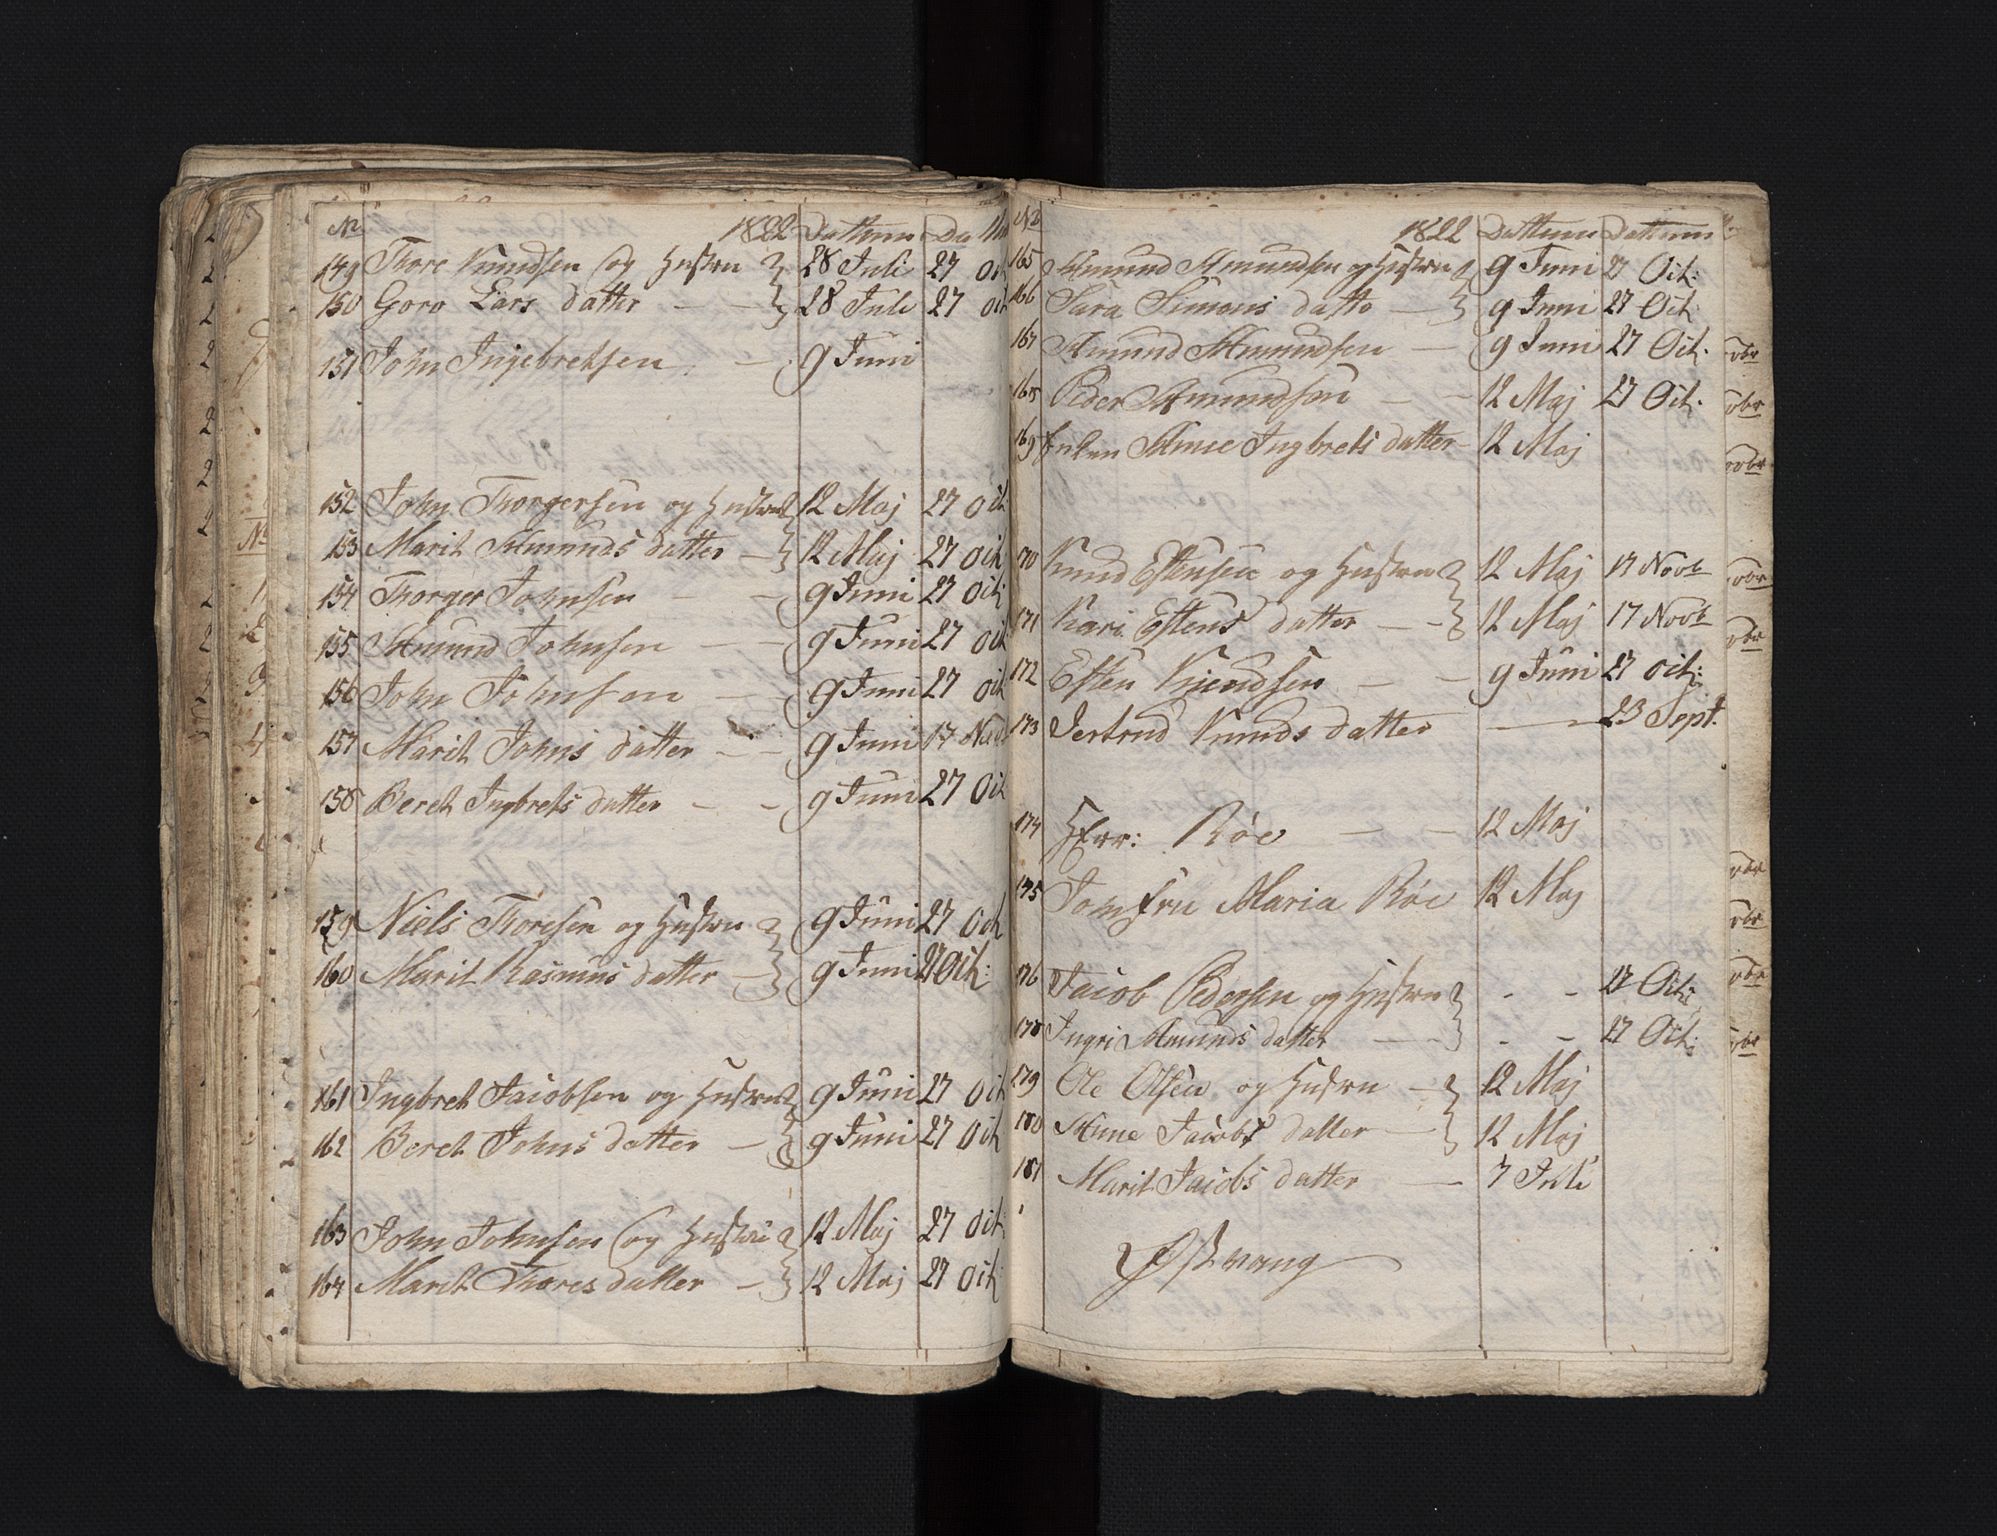 No 1822 Dattum Dattum
149 Thore Knudsen og Hustru 28 Juli 27 Oct
150 Goro Lars datter - - 28 Juli 27 Oct
151 John Ingebretsen - 9 Juni
152 John Thorgersen og Hustru 12 Maj 27 Oct:
153 Marit Amunds datter - 12 Maj 27 Oct
154 Thorger Johnsen - - 9 Juni 27 Oct:
155 Amund Johnsen - - 9 Juni 27 Oct
156 John Johnsen - - 9 Juni 27 Oct
157 Marit Johns datter - - 9 Juni 17
158 Beret Ingbrets datter - - 9 Juni 27 Oct
159 Niels Thoresen og Hustru 9 Juni 27 Oct
160 Marit Rasmus datter - 9 Juni 27 Oct:
161 Ingbret Jacobsen og Hustru 9 Juni 27 Oct
162 Beret Johns datter - 9 Juni 27 Oct
163 John Johnsen og Hustru 12 Maj 27 Oct:
164 Marit Thores datter - 12 Maj 27 Oct
No 1822 Dattum Dattum
165 Amund Amundsen og Hustru 9 Juni 27 Oct:
166 Sara Simons datte - 9 Juni 27 Oct:
167 Amund Amundsen - 9 Juni 27 Oct.
168 Peder Amundsen - - 12 Maj 27 Oct.
169 Enken Anne Ingbrets datter - 12 Maj
170 Knud Estensen og Hustru 12 Maj 17 Novb
171 Kari Estens datter - - 12 Maj 17 Novb
172 Esten Knudsen - - 9 Juni 27 oct:
173 Jertrud Knuds datter - 23 Sept.
174 Herr: Røe - - 12 Maj
175 Jomfru Maria Røe 12 Maj
176 Jacob Pedersen og Hustru - - 27 Oct:
178 Ingri Amunds datter - - - - 27 Oct:
179 Ole Olsen og Hustru - 12 Maj
180 Anne Jacobs datter - 12 Maj
181 Marit Jacobs datter - 7 Juli
Østvang